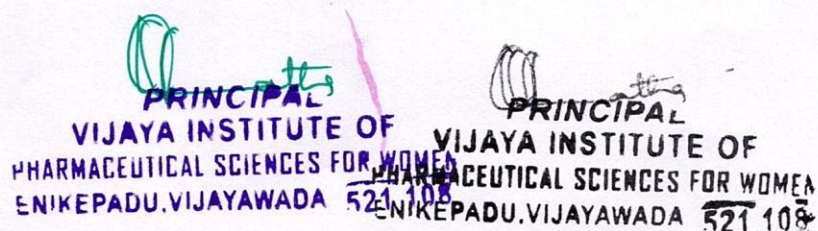 PRINCIPAL
VIJAYA INSTITUTE OF
PHARMACEUTICAL SCIENCES FOR WOMEN
ENIKEPADU, VIJAYAWADA 521 108
PRINCIPAL
VIJAYA INSTITUTE OF
PHARMACEUTICAL SCIENCES FOR WOMEN
ENIKEPADU, VIJAYAWADA 521 108